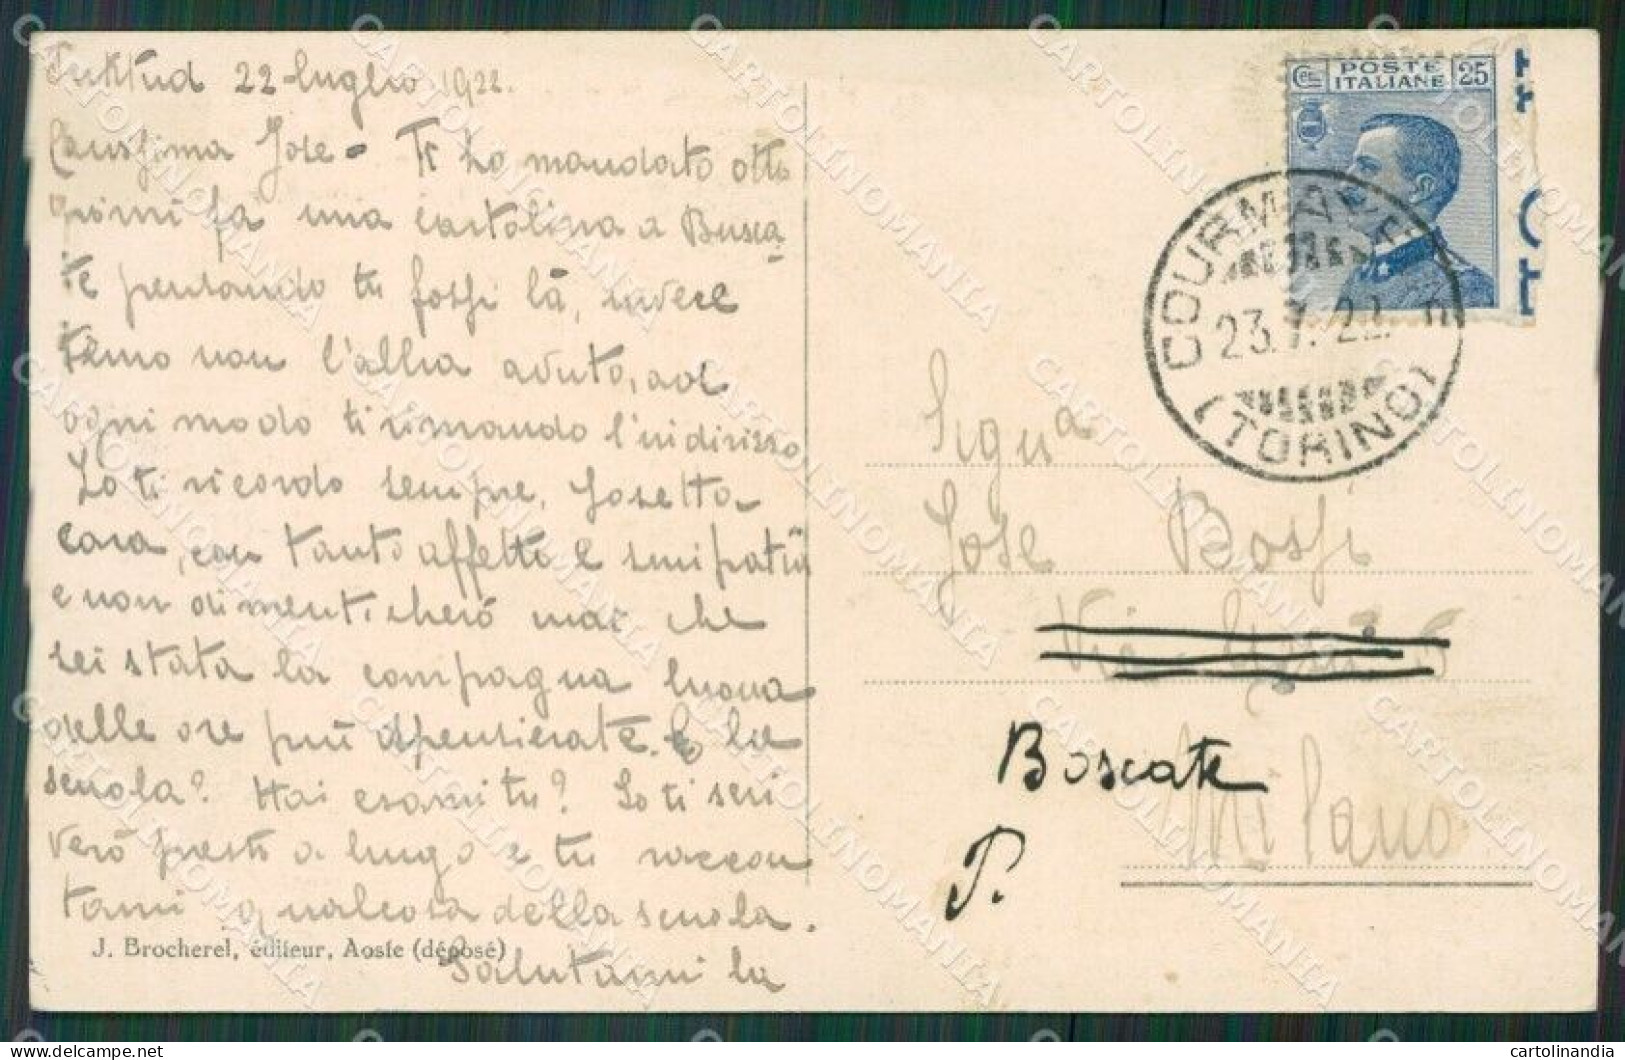 22 luglio 1922.
Carissima Jose - Ti ho mandato otto
giorni fa una cartolina a Busca-
te pensando tu fossi là, invece
temo non l'abbia avuto, ad
ogni modo ti rimando l'indirizzo
Io ti ricordo sempre, Josetta
cara, con tanto affetto e simpatia
e non dimenticherò mai che
sei stata la compagna buona
delle ore più spensierate. E la
scuola? Hai esami tu? Io ti scri
verò presto a lungo e tu raccon
tami qualcosa della scuola.
Salutami la
J. Brocherel, éditeur, Aoste (déposé)
POSTE ITALIANE
Cent. 25
COURMAYEUR
23.7.22
(TORINO)
Signa
Jose Bossi
Via
Milano
Boscate
P.